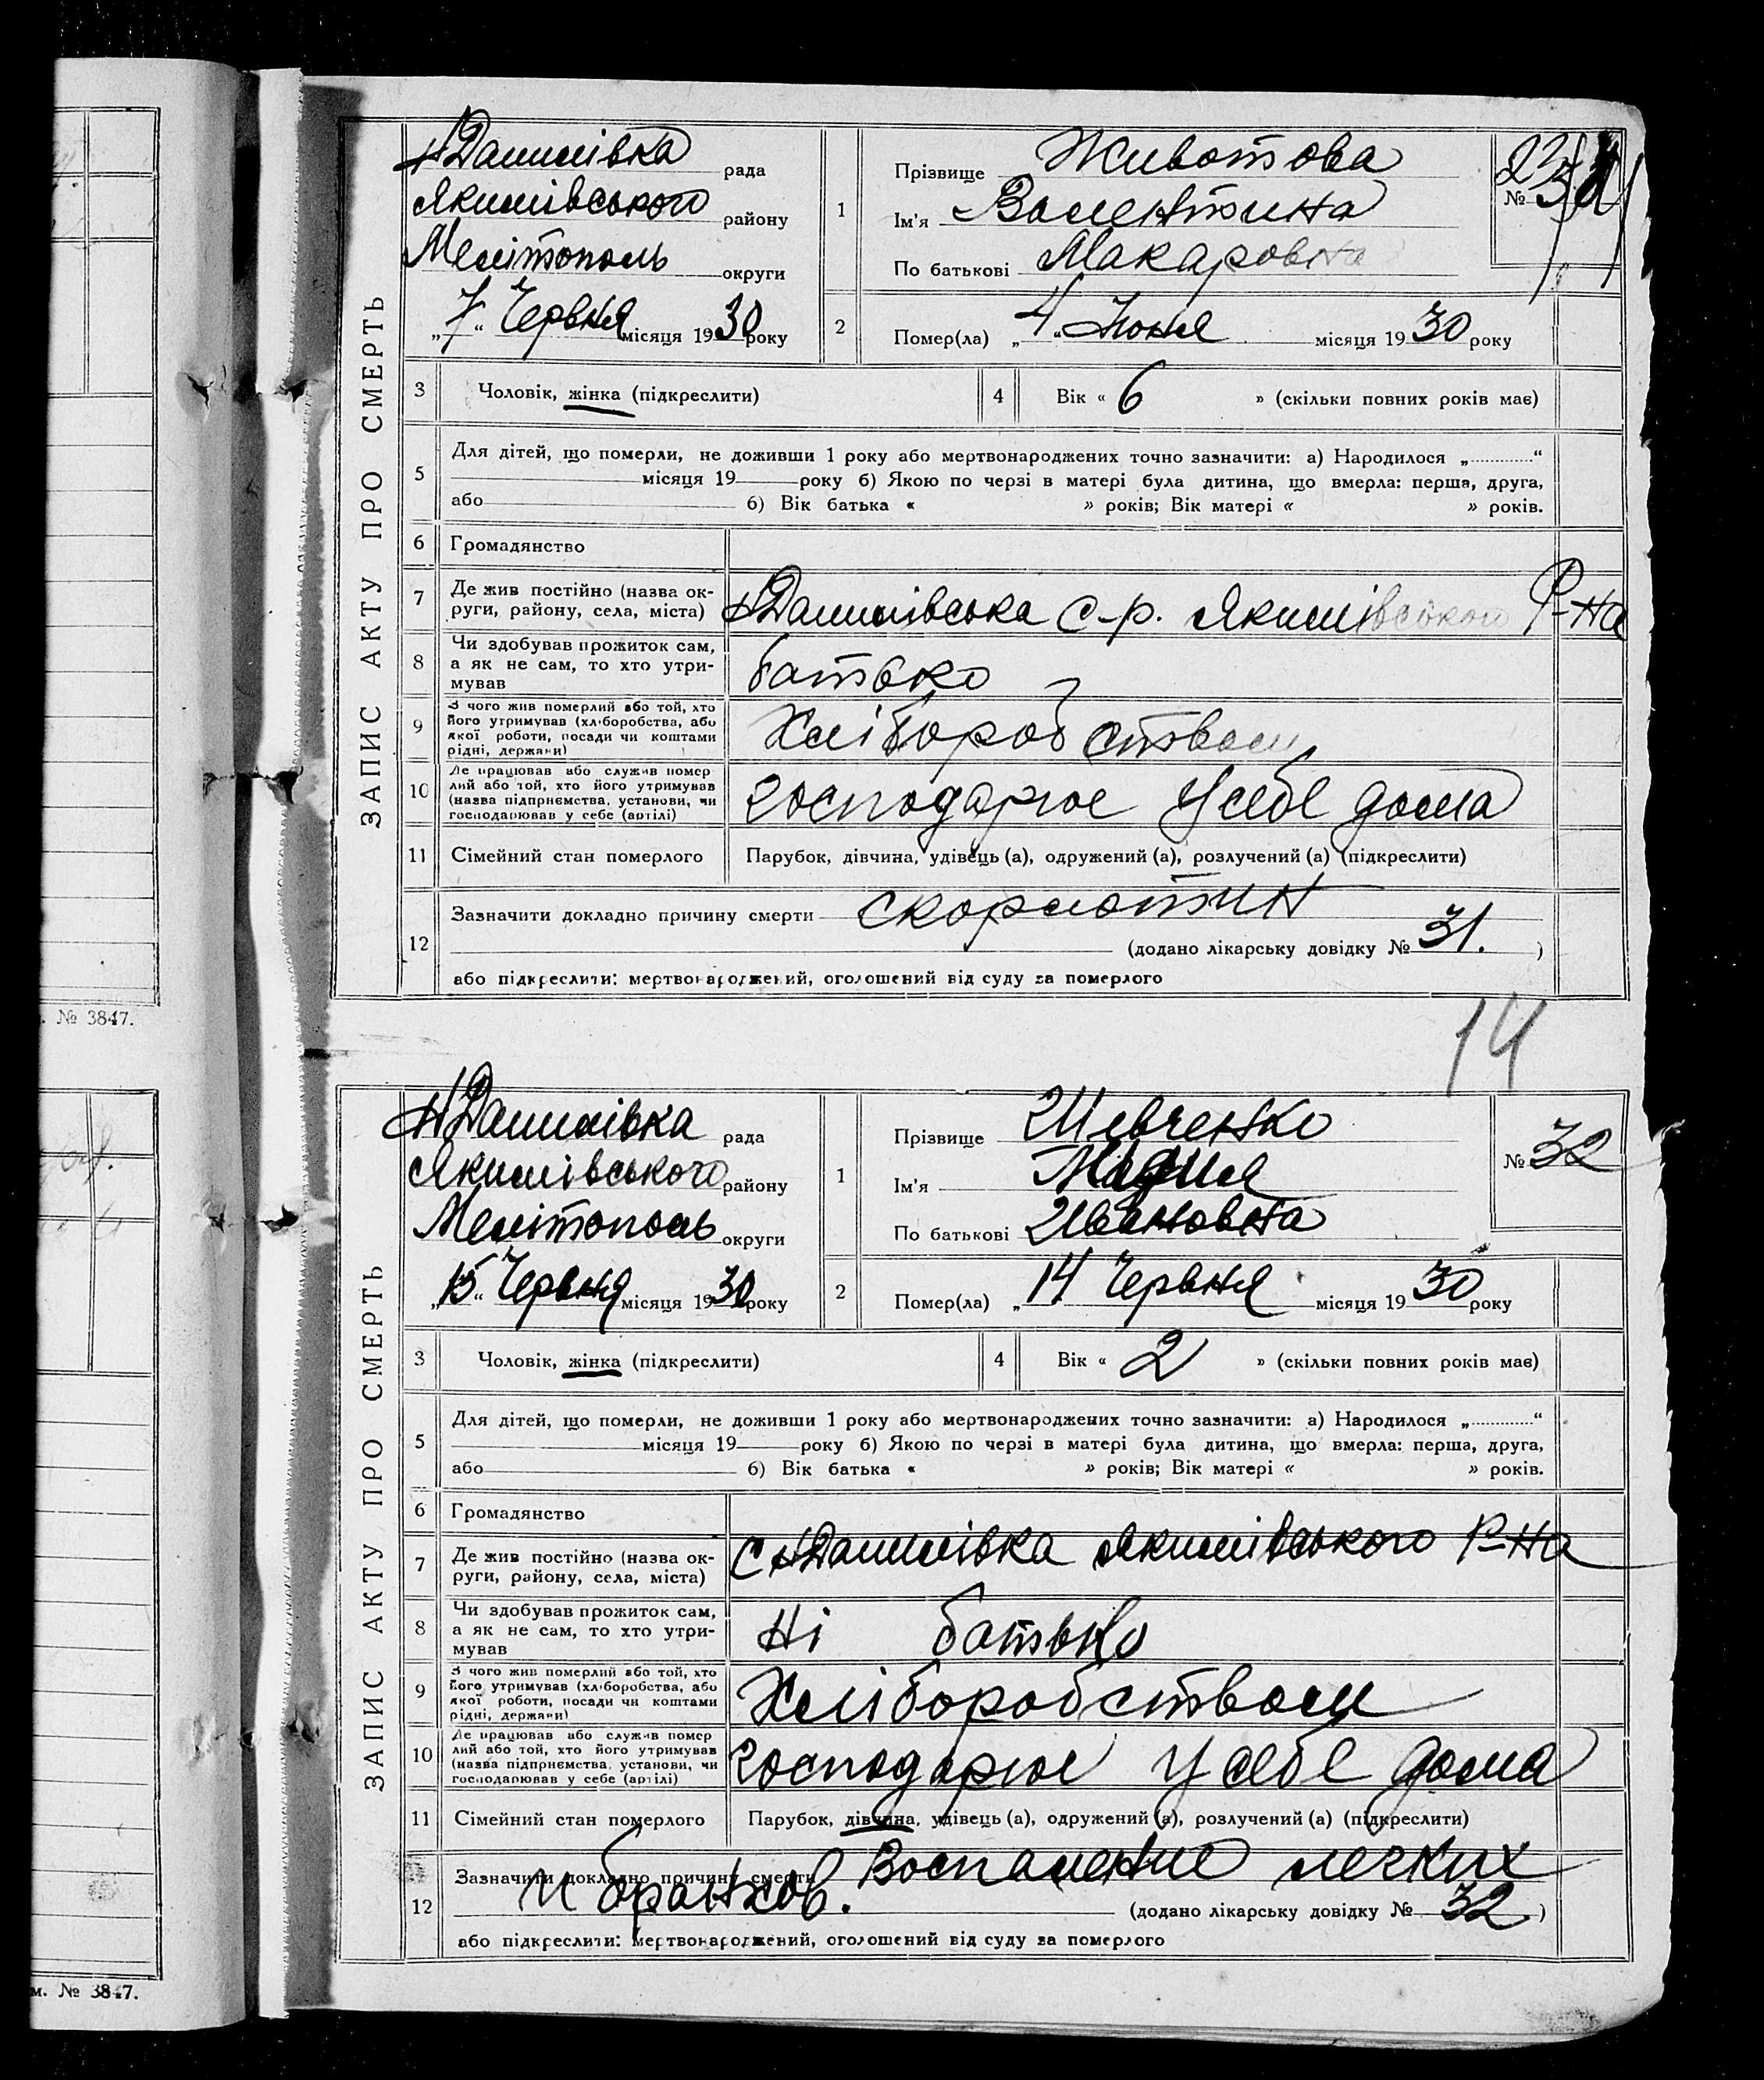 ЗАПИС АКТУ ПРО СМЕРТЬ
Н Данилівка рада
Якимівського району
Мелітополь округи
„7“ Червня місяця 1930 року
1
Прізвище Животова
Ім'я Валентина
По батькові Макаровна
№
2
Помер(ла) „4“ Июня місяця 1930 року
3 Чоловік, жінка (підкреслити)
4 Вік « 6 » (скільки повних років має)
5 Для дітей, що померли, не доживши 1 року або мертвонароджених точно зазначити: а) Народилося „............“
місяця 19 року б) Якою по черзі в матері була дитина, що вмерла: перша, друга,
або б) Вік батька « » років; Вік матері « » років.
6 Громадянство
7 Де жив постійно (назва округи, району, села, міста) Н Данилівська с-р. Якимівськог Р-на
8 Чи здобував прожиток сам,
а як не сам, то хто утри-
мував батько
9 З чого жив померлий або той, хто
його утримував (хліборобства, або
якої роботи, посади чи коштами
рідні, держави) Хліборобством
10 Де працював або служив помер
лий або той, хто його утримував
(назва підприємства, установи, чи
господарював у себе (артілі) господарює у себе дома
11 Сімейний стан померлого Парубок, дівчина, удівець (а), одружений (а), розлучений (а) (підкреслити)
12 Зазначити докладно причину смерти скорлотин
(додано лікарську довідку № 31. )
або підкреслити: мертвонароджений, оголошений від суду за померлого
. № 3847.
14
ЗАПИС АКТУ ПРО СМЕРТЬ
Н Данилівка рада
Якимівського району
Мелітополь округи
„15“ Червня місяця 1930 року
1
Прізвище Шевченко
Ім'я
По батькові Ивановна
№ 32
2
Помер(ла) „14 Червня місяця 1930 року
3 Чоловік, жінка (підкреслити)
4 Вік « 2 » (скільки повних років має)
5 Для дітей, що померли, не доживши 1 року або мертвонароджених точно зазначити: а) Народилося „............“
місяця 19 року б) Якою по черзі в матері була дитина, що вмерла: перша, друга,
або б) Вік батька « » років; Вік матері « » років.
6 Громадянство
7 Де жив постійно (назва округи, району, села, міста) С Н Данилівка Якимівського Р-на
8 Чи здобував прожиток сам,
а як не сам, то хто утри-
мував Ні батько
9 З чого жив померлий або той, хто
його утримував (хліборобства, або
якої роботи, посади чи коштами
рідні, держави) Хліборобством
10 Де працював або служив помер
лий або той, хто його утримував
(назва підприємства, установи, чи
господарював у себе (артілі) господарює у себе дома
11 Сімейний стан померлого Парубок, дівчина, удівець (а), одружений (а), розлучений (а) (підкреслити)
12 Зазначити докладно причину смерти Воспаление легких
и бронхов. (додано лікарську довідку № 32 )
або підкреслити: мертвонароджений, оголошений від суду за померлого
м. № 3847.